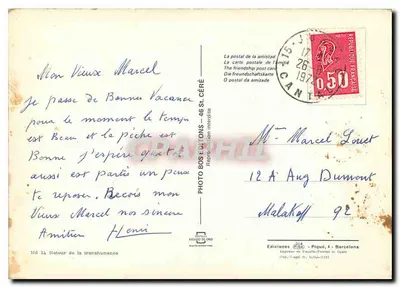 Mon Vieux Marcel
je passe de Bonnes Vacances
pour le moment le temps
est Beau et la pêche est
Bonne j'espère que toi
aussi est partis un peu
te reposer. Reçois mon
Vieux Marcel nos sincères
Amitiés Henri
La postal de la amistad
La carte postale de l'amitié
The friendship post card
Die Freundschaftskarte
O postal da amizade
PHOTO BOS EDITIONS - 46 St. CÉRÉ
Reproduction interdite
RÉPUBLIQUE FRANÇAISE
0,50
15
17
26-
197
CANTAL
Mme Marcel Louet
12 A Ang Dumont
Malakoff 92
Ediciones Piqué, 4 - Barcelona
Retour de la transhumance